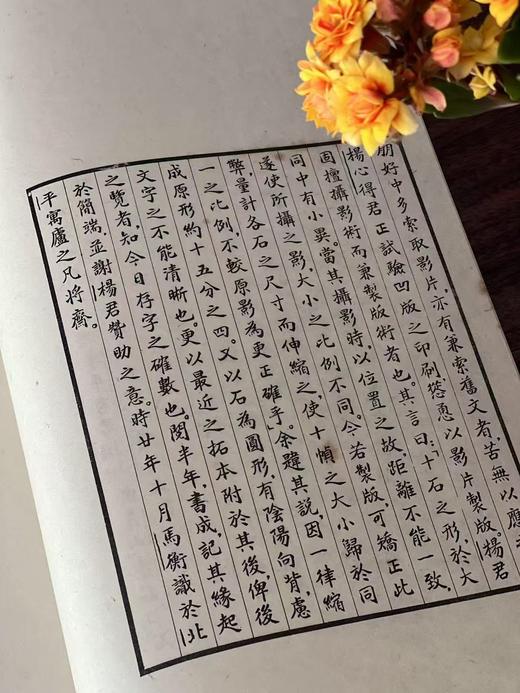 朋好中多索取影片,亦有兼索舊文者,苦無以應
楊心得君正試驗凹版之印刷,慫恿以影片製版。楊君
固擅攝影術而兼製版術者也。其言曰:「十石之形,於大
同中有小異。當其攝影時,以位置之故,距離不能一致,
遂使所攝之影,大小之比例不同。今若製版,可矯正此
弊,量計各石之尺寸而伸縮之,使十幀之大小歸於同
一之比例,不較原影為更正確乎。余韙其說,因一律縮
成原形約十五分之四。又以石為圓形,有陰陽向背,慮
文字之不能清晰也。更以最近之拓本附於其後,俾後
之覽者,知今日存字之確數也。閱半年,書成,記其緣起
於簡端,並謝楊君贊助之意。時廿年十月馬衡識於北
平寓廬之凡將齋。